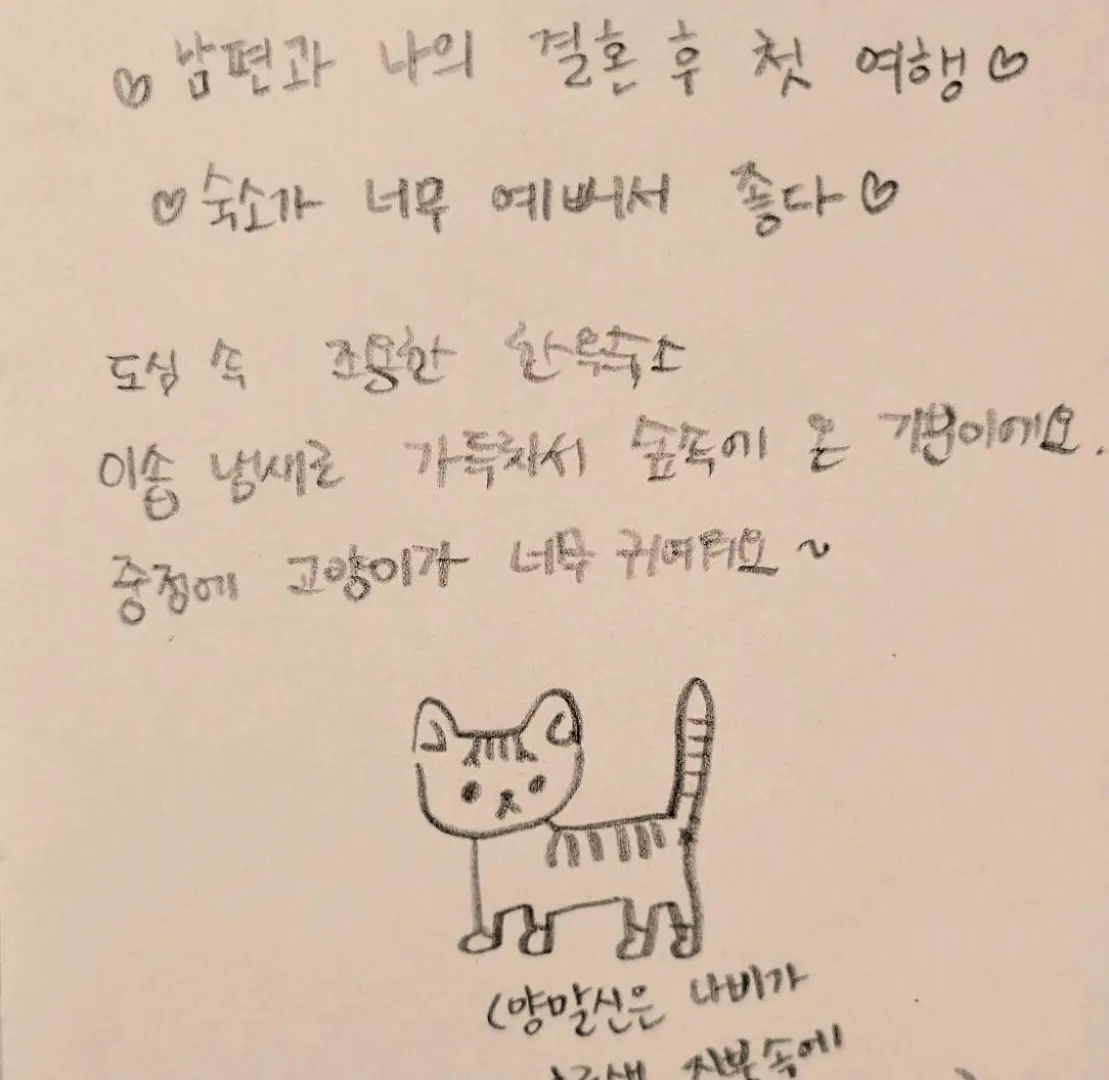 ♡ 남편과 나의 결혼 후 첫 여행 ♡
♡ 숙소가 너무 예뻐서 좋다 ♡
도심 속 조용한 한옥숙소
이솝 냄새로 가득차서 숲속에 온 기분이에요.
중정에 고양이가 너무 귀여워요~
(양말신은 나비가
지붕속에